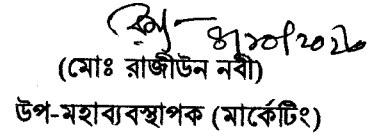 (মোঃ রাজীউন নবী)
উপ-মহাব্যবস্থাপক (মার্কেটিং)